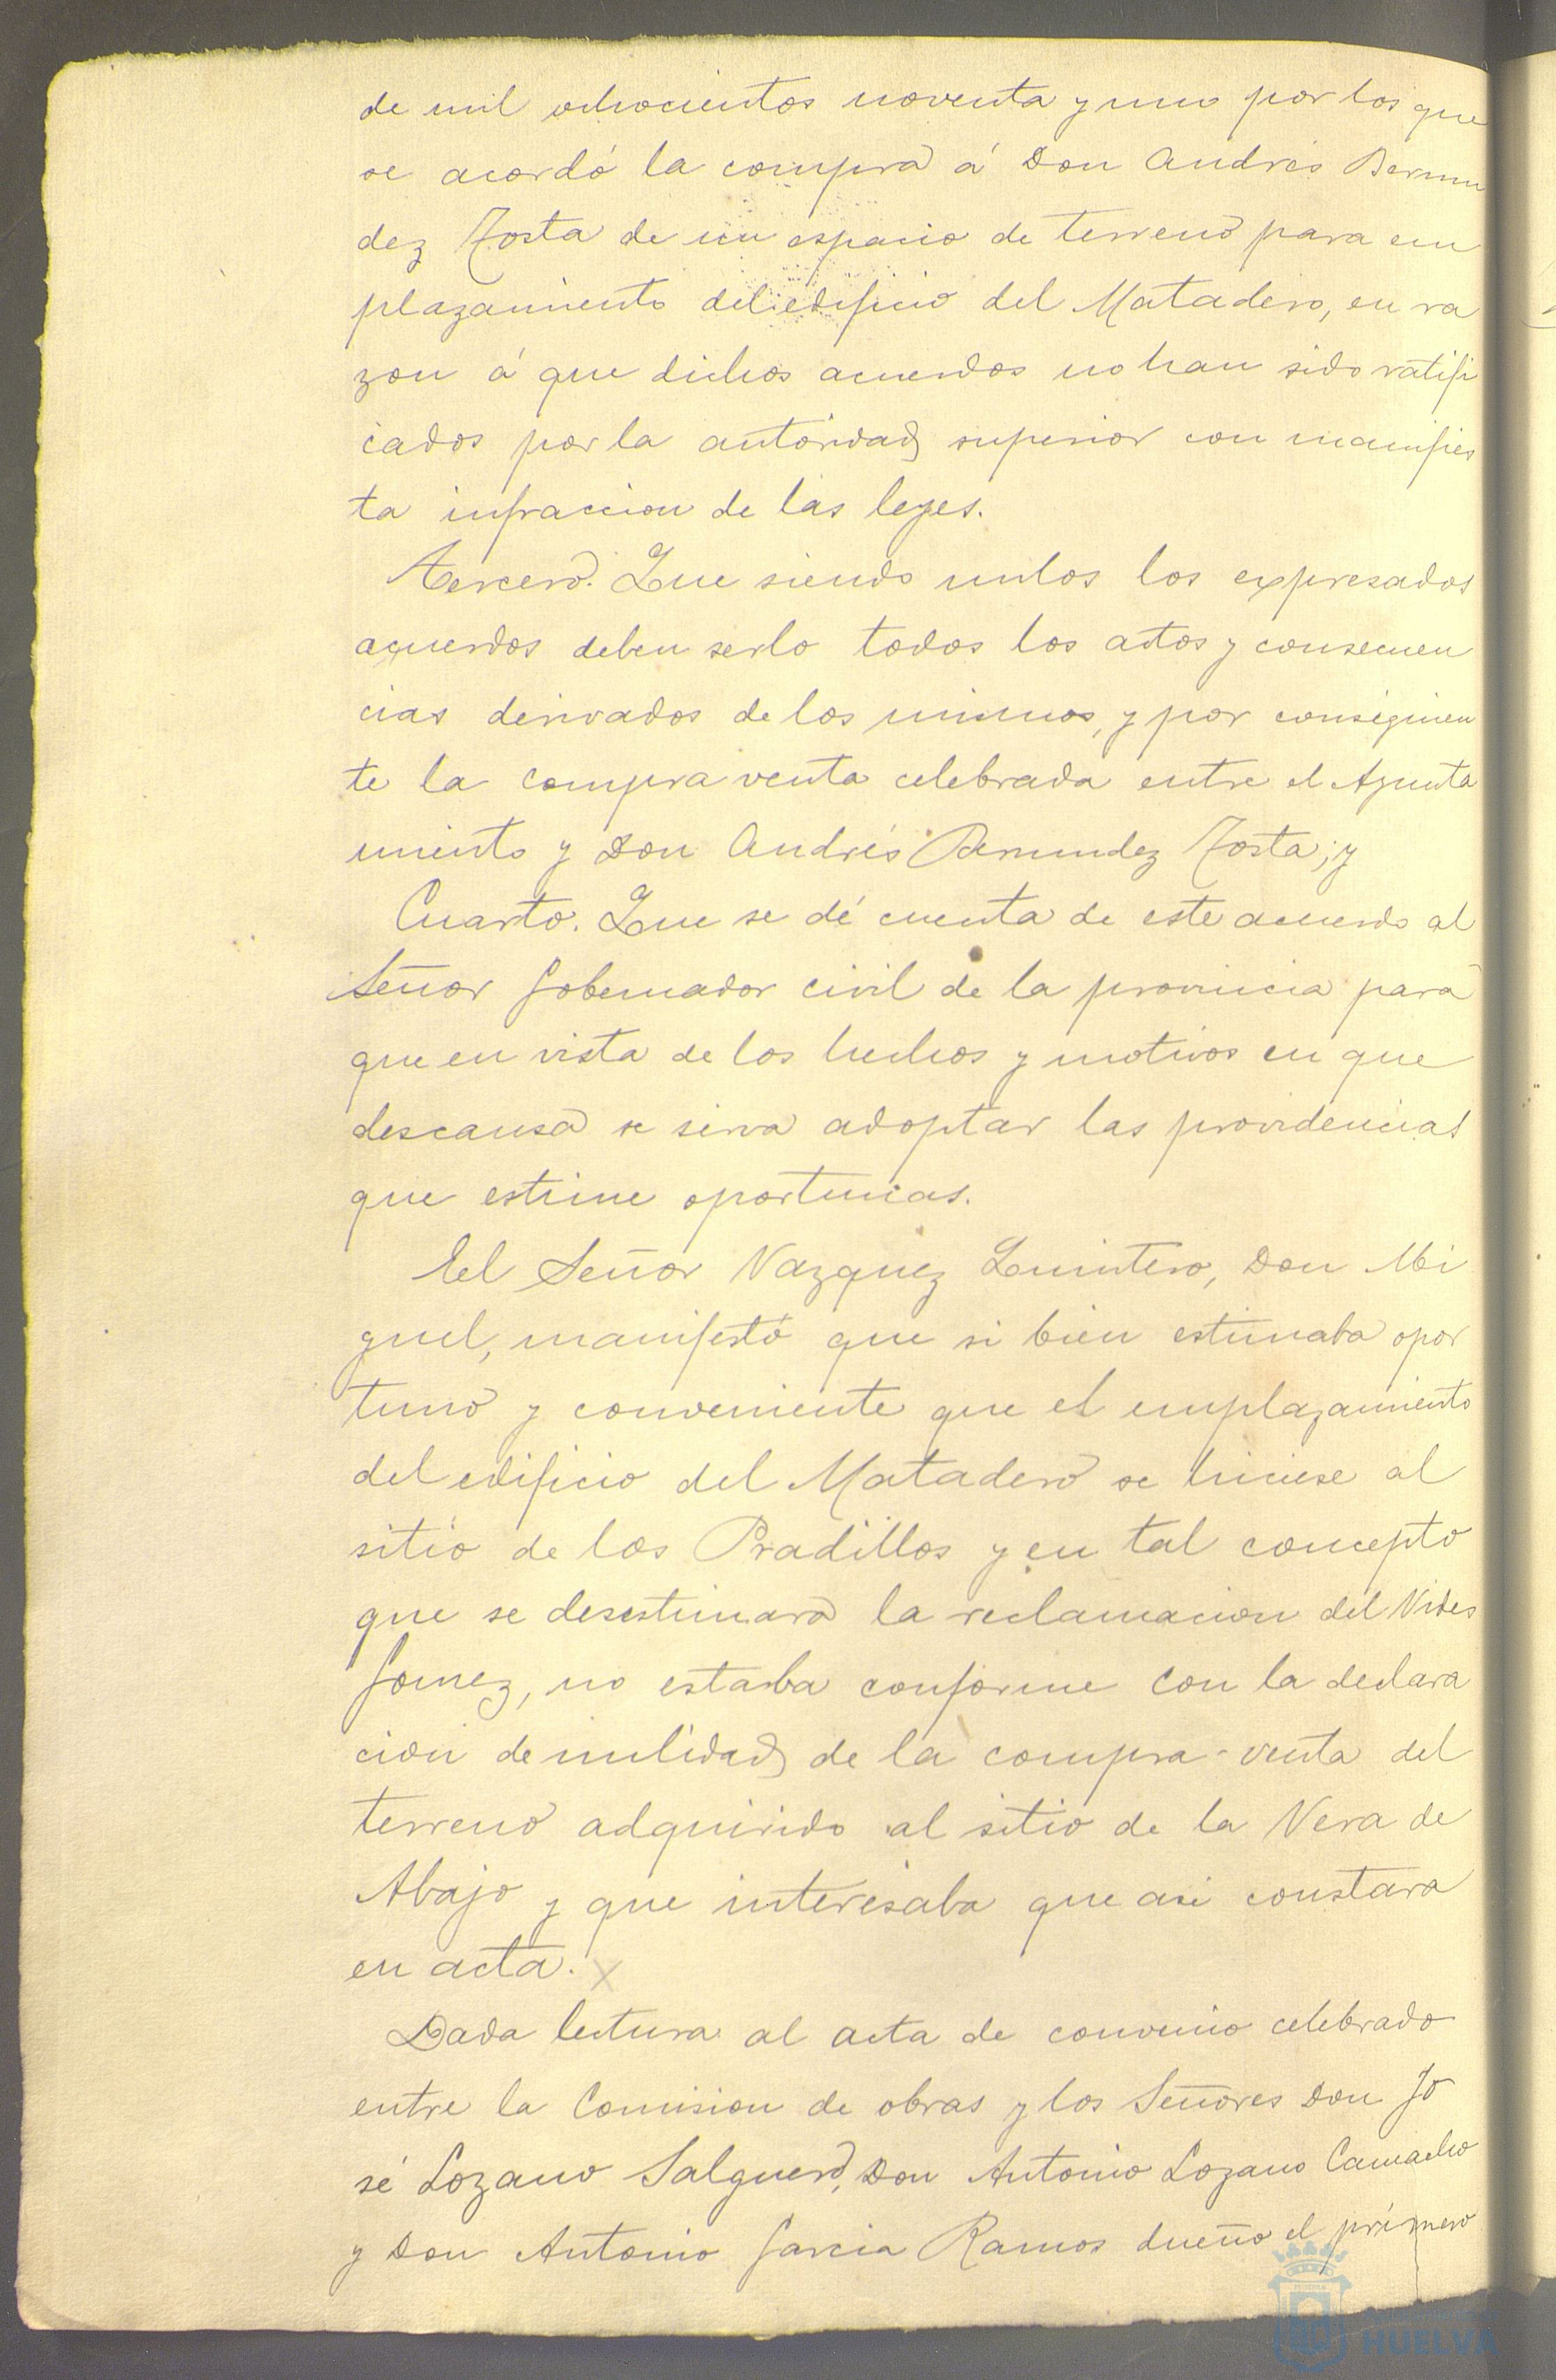 de mil ochocientos noventa y uno por los que
se acordó la compra á Don Andrés Bermu
dez Tosta de un espacio de terreno para em
plazamiento del edificio del Matadero, en ra
zon á que dichos acuerdos no han sido ratifi
cados por la autoridad superior con manifies
ta infraccion de las leyes.
Tercero. Que siendo nulos los expresados
acuerdos deben serlo todos los actos y consecuen
cias derivados de los mismos, y por consiguien
te la compra venta celebrada entre el Ayunta
miento y Don Andrés Bermudez Tosta; y
Cuarto. Que se dé cuenta de este acuerdo al
Señor Gobernador civil de la provincia para
que en vista de los hechos y motivos en que
descansa se sirva adoptar las providencias
que estime oportunas.
El Señor Vazquez Quintero, Don Mi
guel, manifestó que si bien estimaba opor
tuno y conveniente que el emplazamiento
del edificio del Matadero se hiciese al
sitio de los Pradillos y en tal concepto
que se desestimara la reclamacion del Vides
Gomez, no estaba conforme con la declara
cion de nulidad de la compra-venta del
terreno adquirido al sitio de la Vera de
Abajo y que interesaba que asi constara
en acta.
Dada lectura al acta de convenio celebrado
entre la Comision de obras y los Señores Don Jo
sé Lozano Salguero, Don Antonio Lozano Camacho
y Don Antonio Garcia Ramos dueño el primero
HUELVA